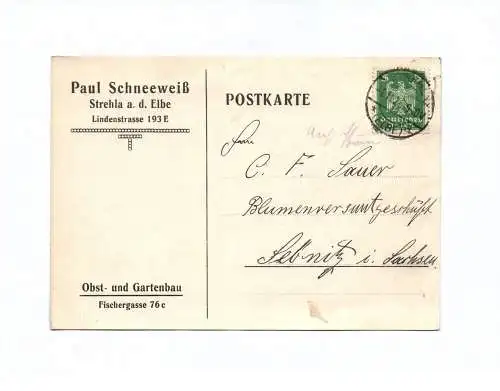 Paul Schneeweiß
Strehla a. d. Elbe
Lindenstrasse 193 E
POSTKARTE
Firma
C. F. Sauer
Blumenversandtgeschäft
Sebnitz i. Sachsen
Obst- und Gartenbau
Fischergasse 76 c